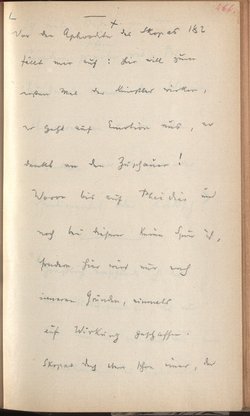 Vor der Aphrodite des Skopas 182
fällt mir auf: hier will zum
ersten Mal der Künstler wirken,
er geht auf Emotion aus, er
denkt an den Zuschauer!
Wovon bis auf Pheidias und
noch bei diesem keine Spur ist,
sondern hier wird nur nach
inneren Gründen, niemals
auf Wirkung geschaffen.
Skopas doch eben schon einer, der